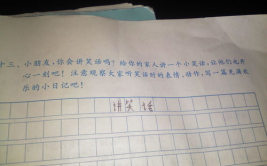 十三、小朋友,你会讲笑话吗?给你的家人讲一个小笑话,让他们也开
心一刻吧!注意观察大家听笑话时的表情、动作,写一篇充满欢
乐的小日记吧!
讲笑话